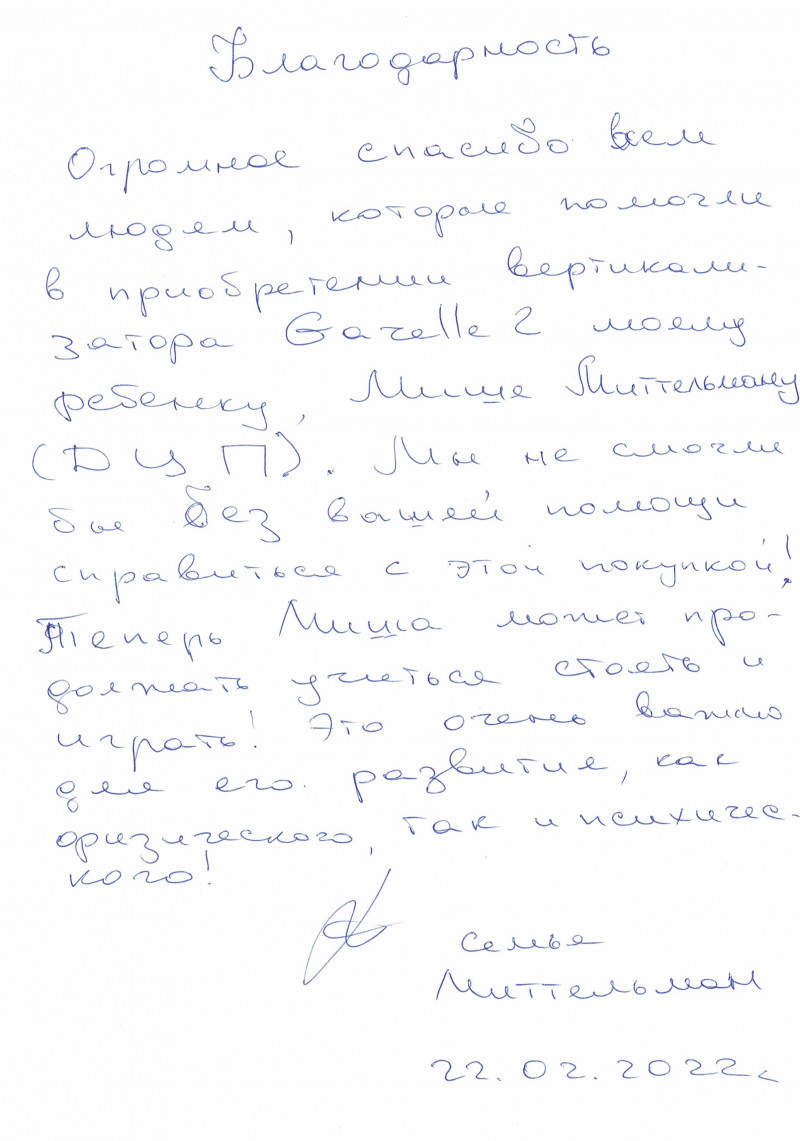 Благодарность
Огромное спасибо всем
людям, которые помогли
в приобретении вертикали-
затора Gazelle 2 моему
ребенку, Мише Миттельману
(ДЦП). Мы не смогли
бы без вашей помощи
справиться с этой покупкой!
Теперь Миша может про-
должать учиться стоять и
играть! Это очень важно
для его развития, как
физического, так и психичес-
кого!
Семья
Миттельман
22.02.2022г.